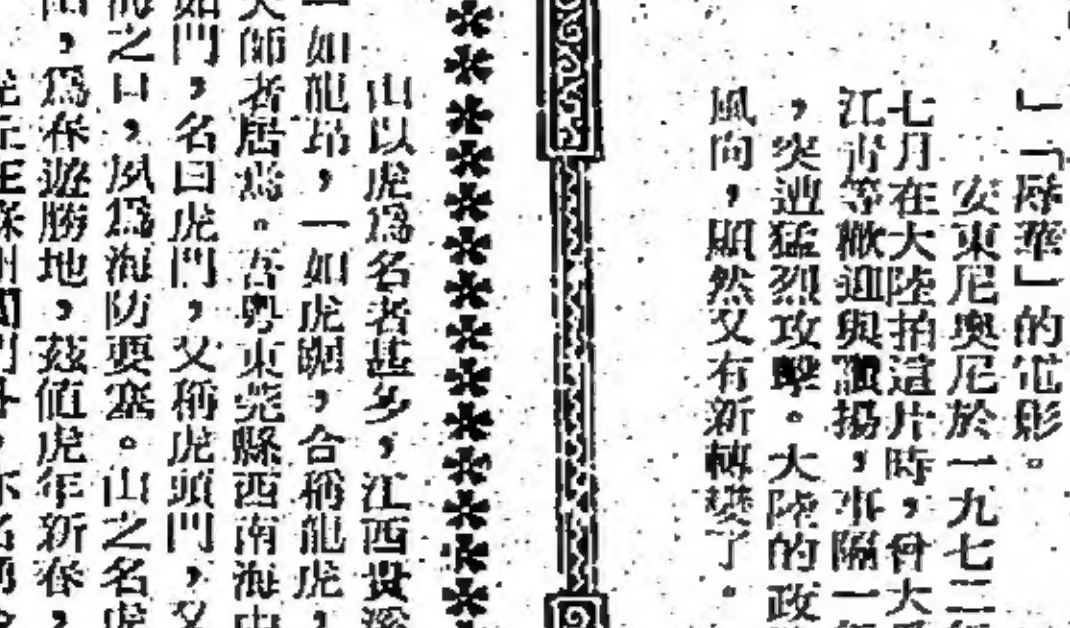 」「辱華」的電影。
安東尼奧尼於一九七二
七月在大陸拍這片時,曾大受
江青等歡迎與讚揚,事隔一
,突遭猛烈攻擊。大陸的政
風向,顯然又有新轉變了。
山以虎為名者甚多,江西貴溪
一如龍昂,一如虎踞,合稱龍虎,
天師者居焉。吾粵東莞縣西南海中
如門,名曰虎門,又稱虎頭門,又
海之口,夙為海防要塞。山之名虎
,為春遊勝地,茲值虎年新春,